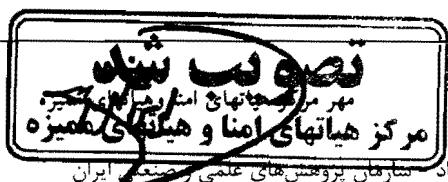 تصویب شد
مهر مرکز هیاتهای امنا و هیاتهای ممیزه
مرکز هیاتهای امنا و هیاتهای ممیزه
سازمان پژوهش‌های علمی و صنعتی ایران